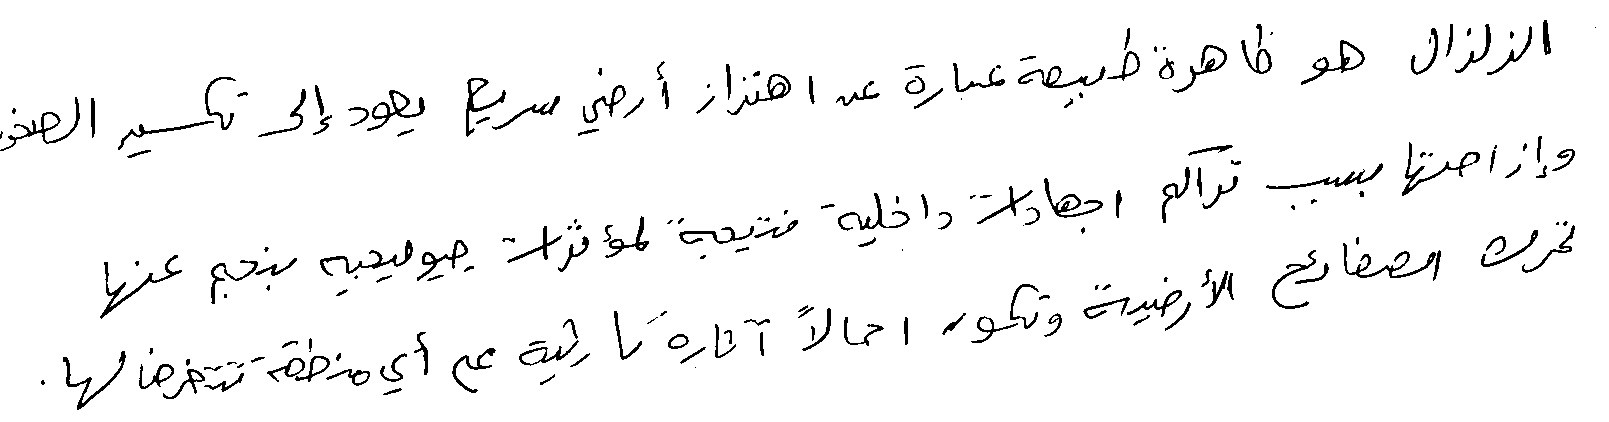 الزلزال هو ظاهرة طبيعية عبارة عن اهتزاز أرضي سريع يعود إلى تكسير الصخور
وإزاحتها بسبب تراكم اجهادات داخلية نتيجة لمؤثرات جيولوجية ينجم عنها
تحرك الصفائح الأرضية وتكون اجمالاً آثاره كارثية على أي منطقة تتعرض لها.